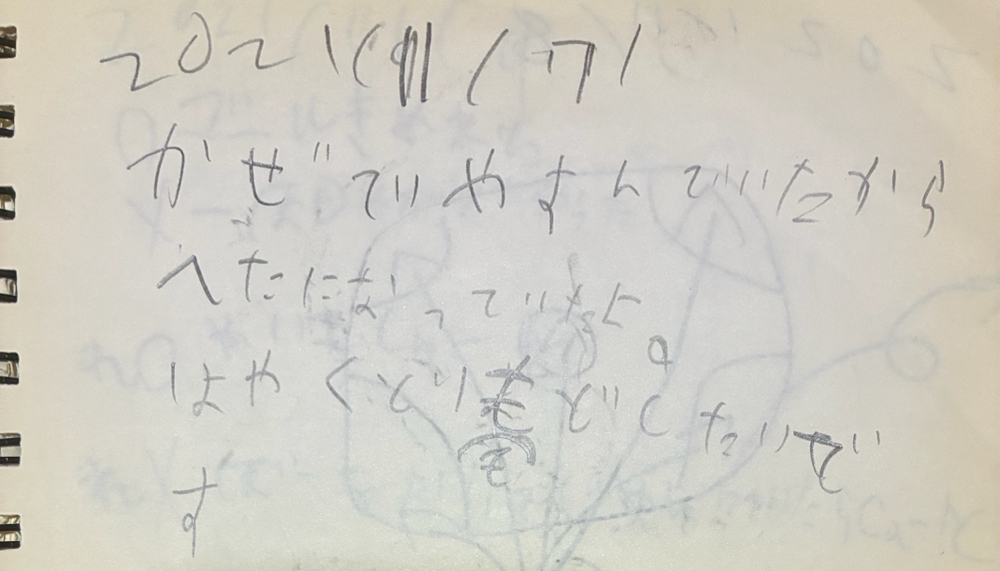 2021
かぜでやすんでいたから
へたになっていたよ。
はやくとりもどしたいで
す